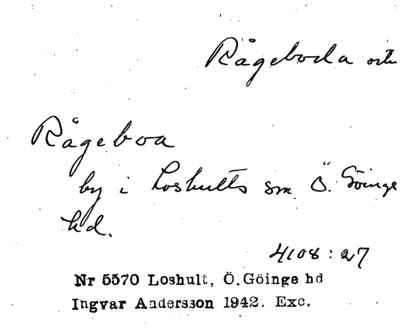 Rågeboda ortn
Rågeboa
by i Loshults sn Ö. Göinge
hd.
4108:27
Nr 5570 Loshult, Ö.Göinge hd
Ingvar Andersson 1942. Exc.